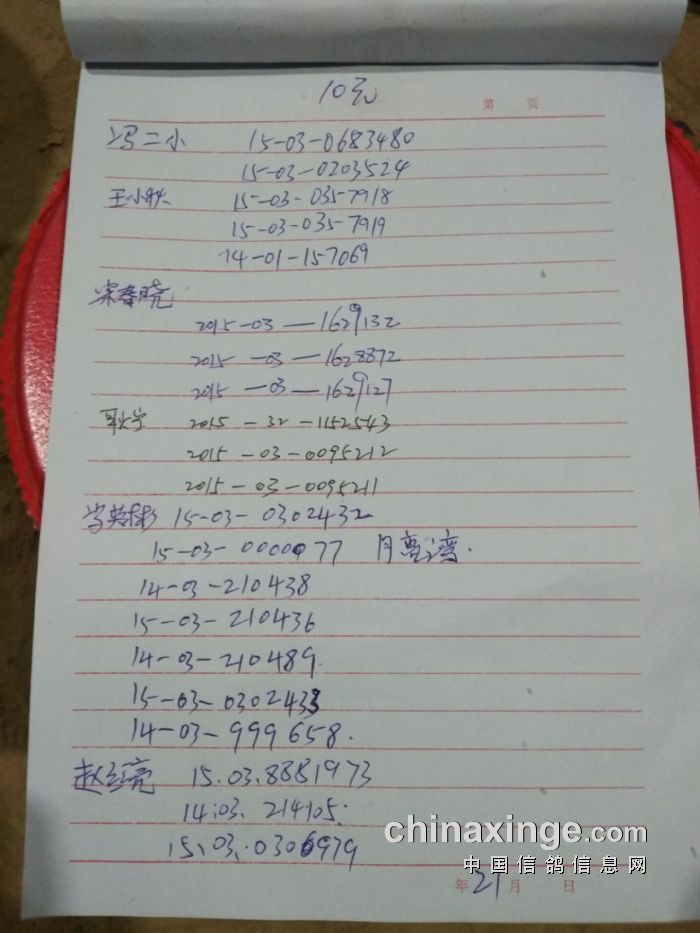 10元
第 页
冯二小 15-03-0683480
15-03-0203524
王小秋 15-03-0357918
15-03-0357919
14-01-157069
宋春晓
2015-03—1629132
2015-03—1628872
2015-03—1629127
耿宁 2015-32-1152543
2015-03-0095212
2015-03-0095211
15-03-0302432
15-03-0000077 月亮湾.
14-03-210438
15-03-210436
14-03-210489.
15-03-0302433
14-03-999658.
赵红亮 15.03.8881973
14.03.214105.
15.03.0306979
chinaxinge.com
中国信鸽信息网
年 21 月 日